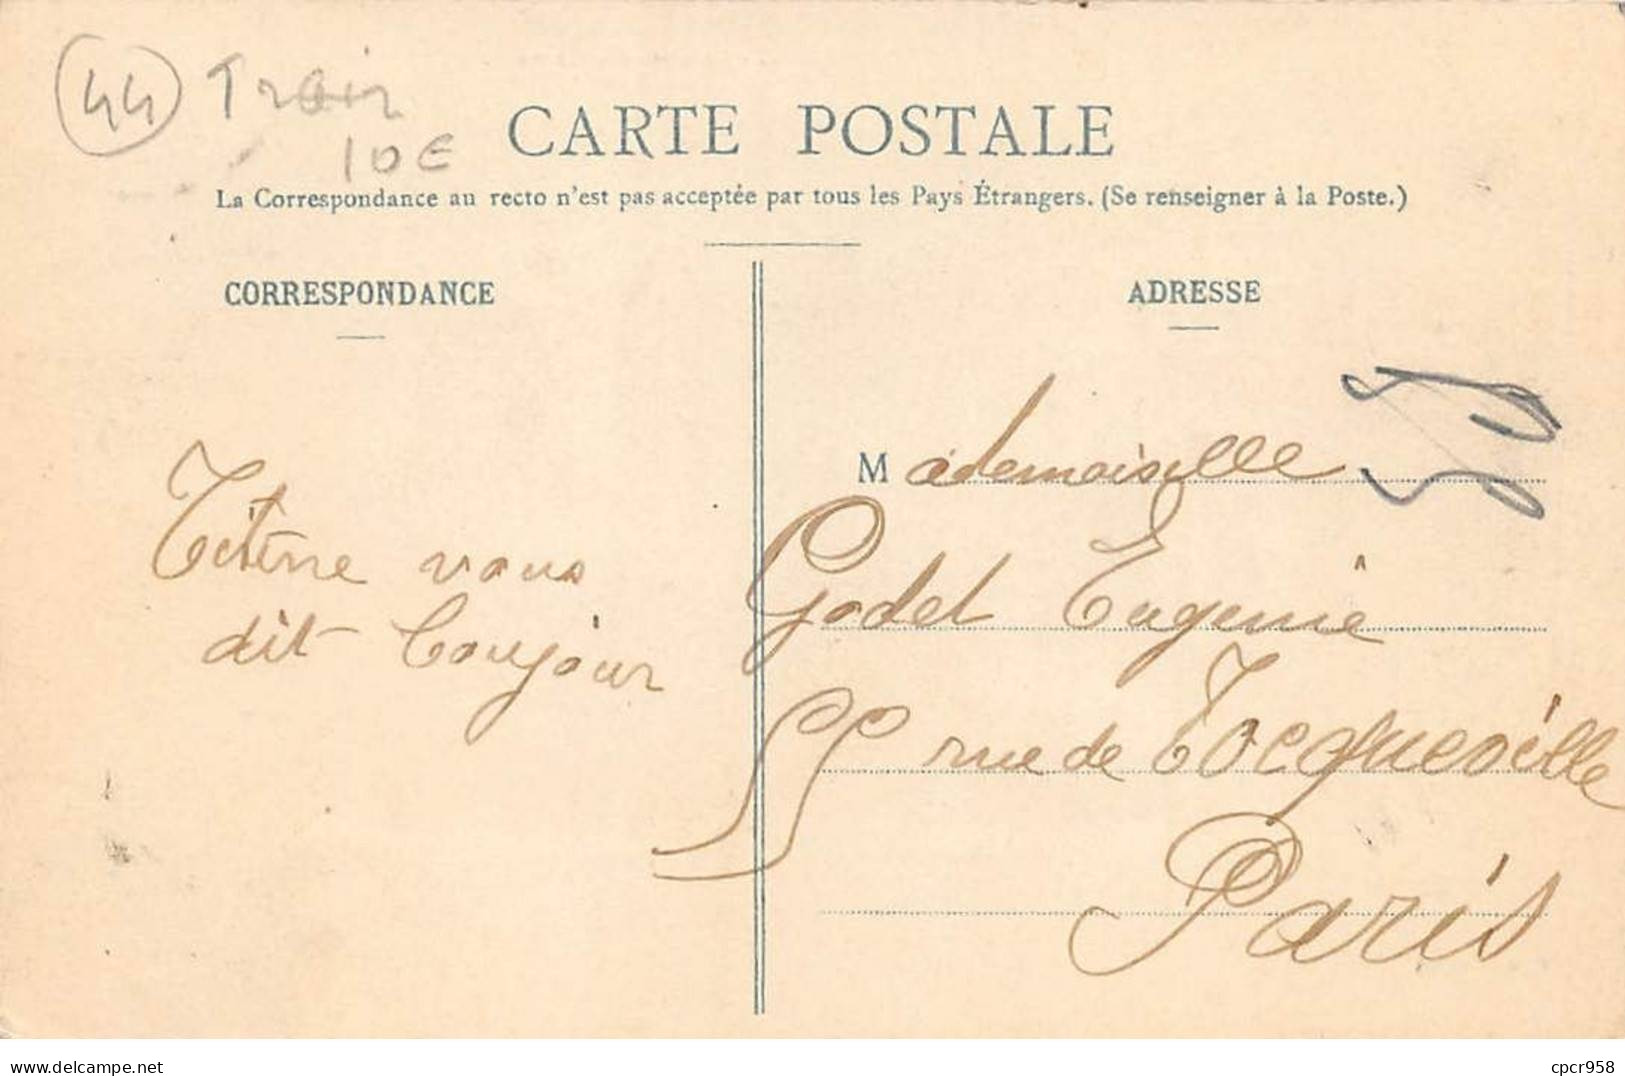 44 Train
10€
CARTE POSTALE
La Correspondance au recto n'est pas acceptée par tous les Pays Étrangers. (Se renseigner à la Poste.)
CORRESPONDANCE
ADRESSE
Mademoiselle
Godet Eugenie
55 rue de Tocqueville
Paris
Titine vous
dit Toujour
delcampe.net
cpcr958